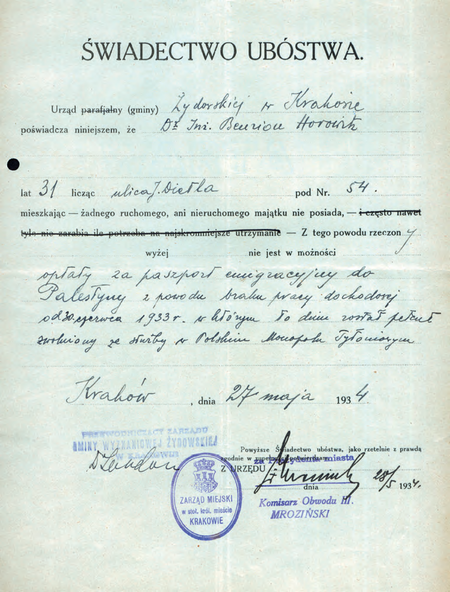 ŚWIADECTWO UBÓSTWA.
Urząd parafjalny (gminy) Żydowskiej w Krakowie
poświadcza niniejszem, że Dr Inż. Benzion Horowitz
lat 31 licząc ulica J. Dietla pod Nr. 54.
mieszkając — żadnego ruchomego, ani nieruchomego majątku nie posiada, — i często nawet
tyle nie zarabia ile potrzeba na najskromniejsze utrzymanie — Z tego powodu rzeczony
wyżej nie jest w możności
opłaty za paszport emigracyjny do
Palestyny z powodu braku pracy dochodowej
od 30. czerwca 1933 r. w którym to dniu został petent
zwolniony ze służby w Polskim Monopolu Tytoniowym
Kraków, dnia 27 maja 1934
PRZEWODNICZĄCY ZARZĄDU
GMINY WYZNANIOWEJ ŻYDOWSKIEJ
W KRAKOWIE
Powyższe Świadectwo ubóstwa, jako rzetelnie z prawdą
zgodnie w zupełności
za Prezydenta miasta
Z URZĘDU
dnia 28/5 1934.
ZARZĄD MIEJSKI
w stoł. król. mieście
KRAKOWIE
Komisarz Obwodu III.
MROZIŃSKI